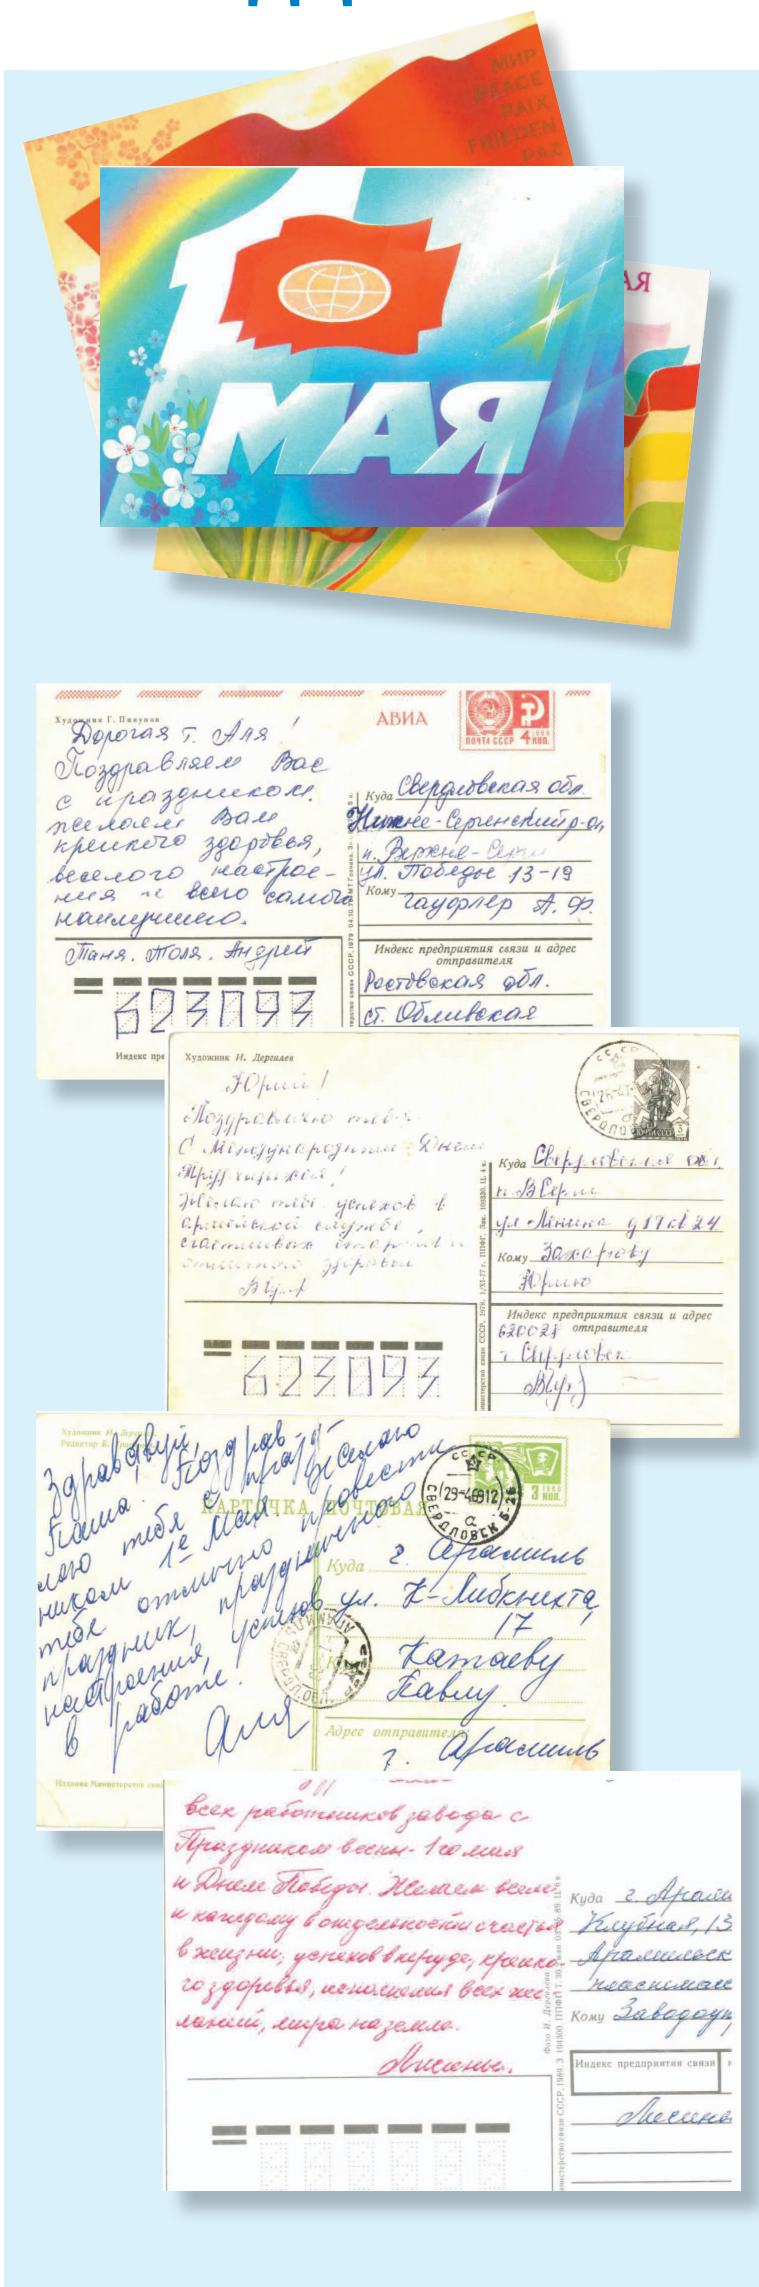 МИР
PEACE
PAIX
FRIEDEN
PAZ
АЯ
1 МАЯ
Художник Г. Пикунов
АВИА
ПОЧТА СССР 4 КОП.
Дорогая т. Аля!
Поздравляем Вас
с праздником.
желаем Вам
крепкого здоровья,
веселого настрое-
ния и всего самого
наилучшего.
Таня. Толя. Андрей
623093
Индекс пре
Куда Свердловская обл.
Нижне-Сергинский р-он
п. Верхне-Серги
ул. Победы 13-19
Кому Гауфлер А. Ф.
Индекс предприятия связи и адрес
отправителя
Ростовская обл.
ст. Обливская
Художник И. Дергилев
Юрий!
Поздравляю тебя
С Международным Днём
Трудящихся!
Желаю тебе успехов в
армейской службе,
счастливых стартов и
отличного здоровья
623093
Куда Свердловская обл.
п. В Серги
ул Ленина д 17 кв 24
Кому Захарову
Юрию
Индекс предприятия связи и адрес
отправителя
620021
г Свердловск
КАРТОЧКА ПОЧТОВАЯ
СССР
29-4 69 12
СВЕРДЛОВСК Б-26
3 КОП.
Здравствуй,
Паша! Поздрав-
ляю тебя с празд-
ником 1е Мая. Желаю
тебе отлично провести
праздник, праздничного
настроения, успехов
в работе!
Аля
Куда г. Арамиль
ул. К-Либкнехта,
17
Катаеву
Павлу.
Адрес отправителя:
г. Арамиль
Издание Министерства связи
всех работников завода с
Праздником весны - 1го мая
и Днем Победы. Желаем всем
и каждому в отдельности счастья
в жизни, успехов в труде, крепко-
го здоровья, исполнения всех же-
ланий, мира на земле.
Лисины.
Куда г. Арами
Клубная, 13
Арамильск
пластмасс
Кому Заводоуп
Индекс предприятия связи
Лисины